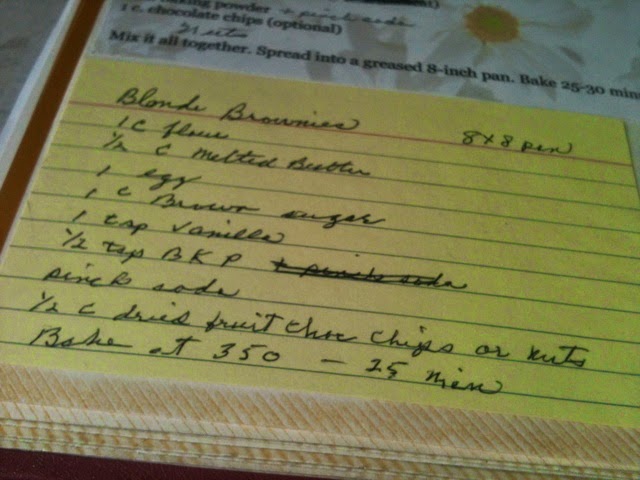 king powder + pinch soda
1 c. chocolate chips (optional)
Mix it all together. Spread into a greased 8-inch pan. Bake 25-30 min
Blonde Brownies 8x8 pan
1 c flour
1/2 c melted Butter
1 egg
1 c Brown sugar
1 tsp vanilla
1/2 tsp BKP + pinch soda
pinch soda
1/2 c dried fruit choc chips or nuts
Bake at 350 - 25 min